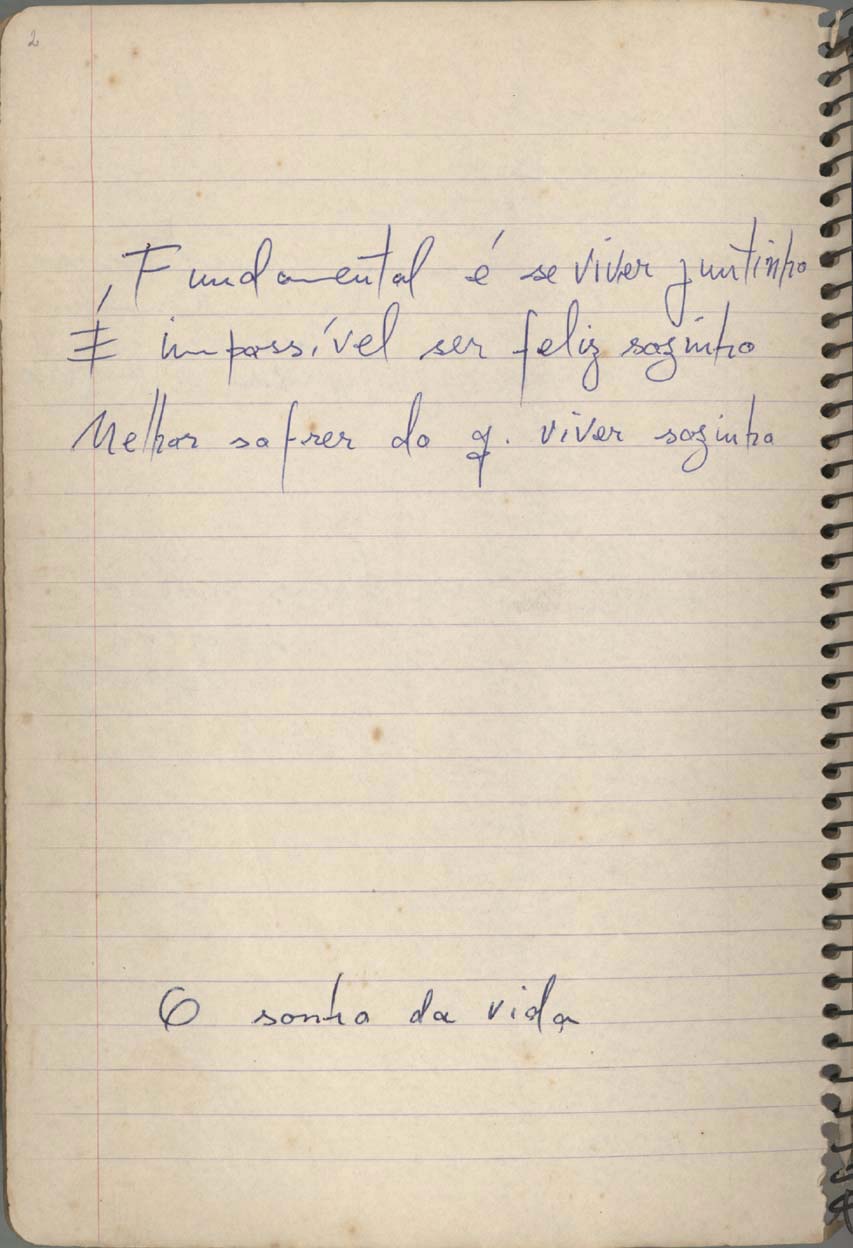 2
Fundamental é se viver juntinho
É impossível ser feliz sozinho
Melhor sofrer do q. viver sozinho
O sonho da vida